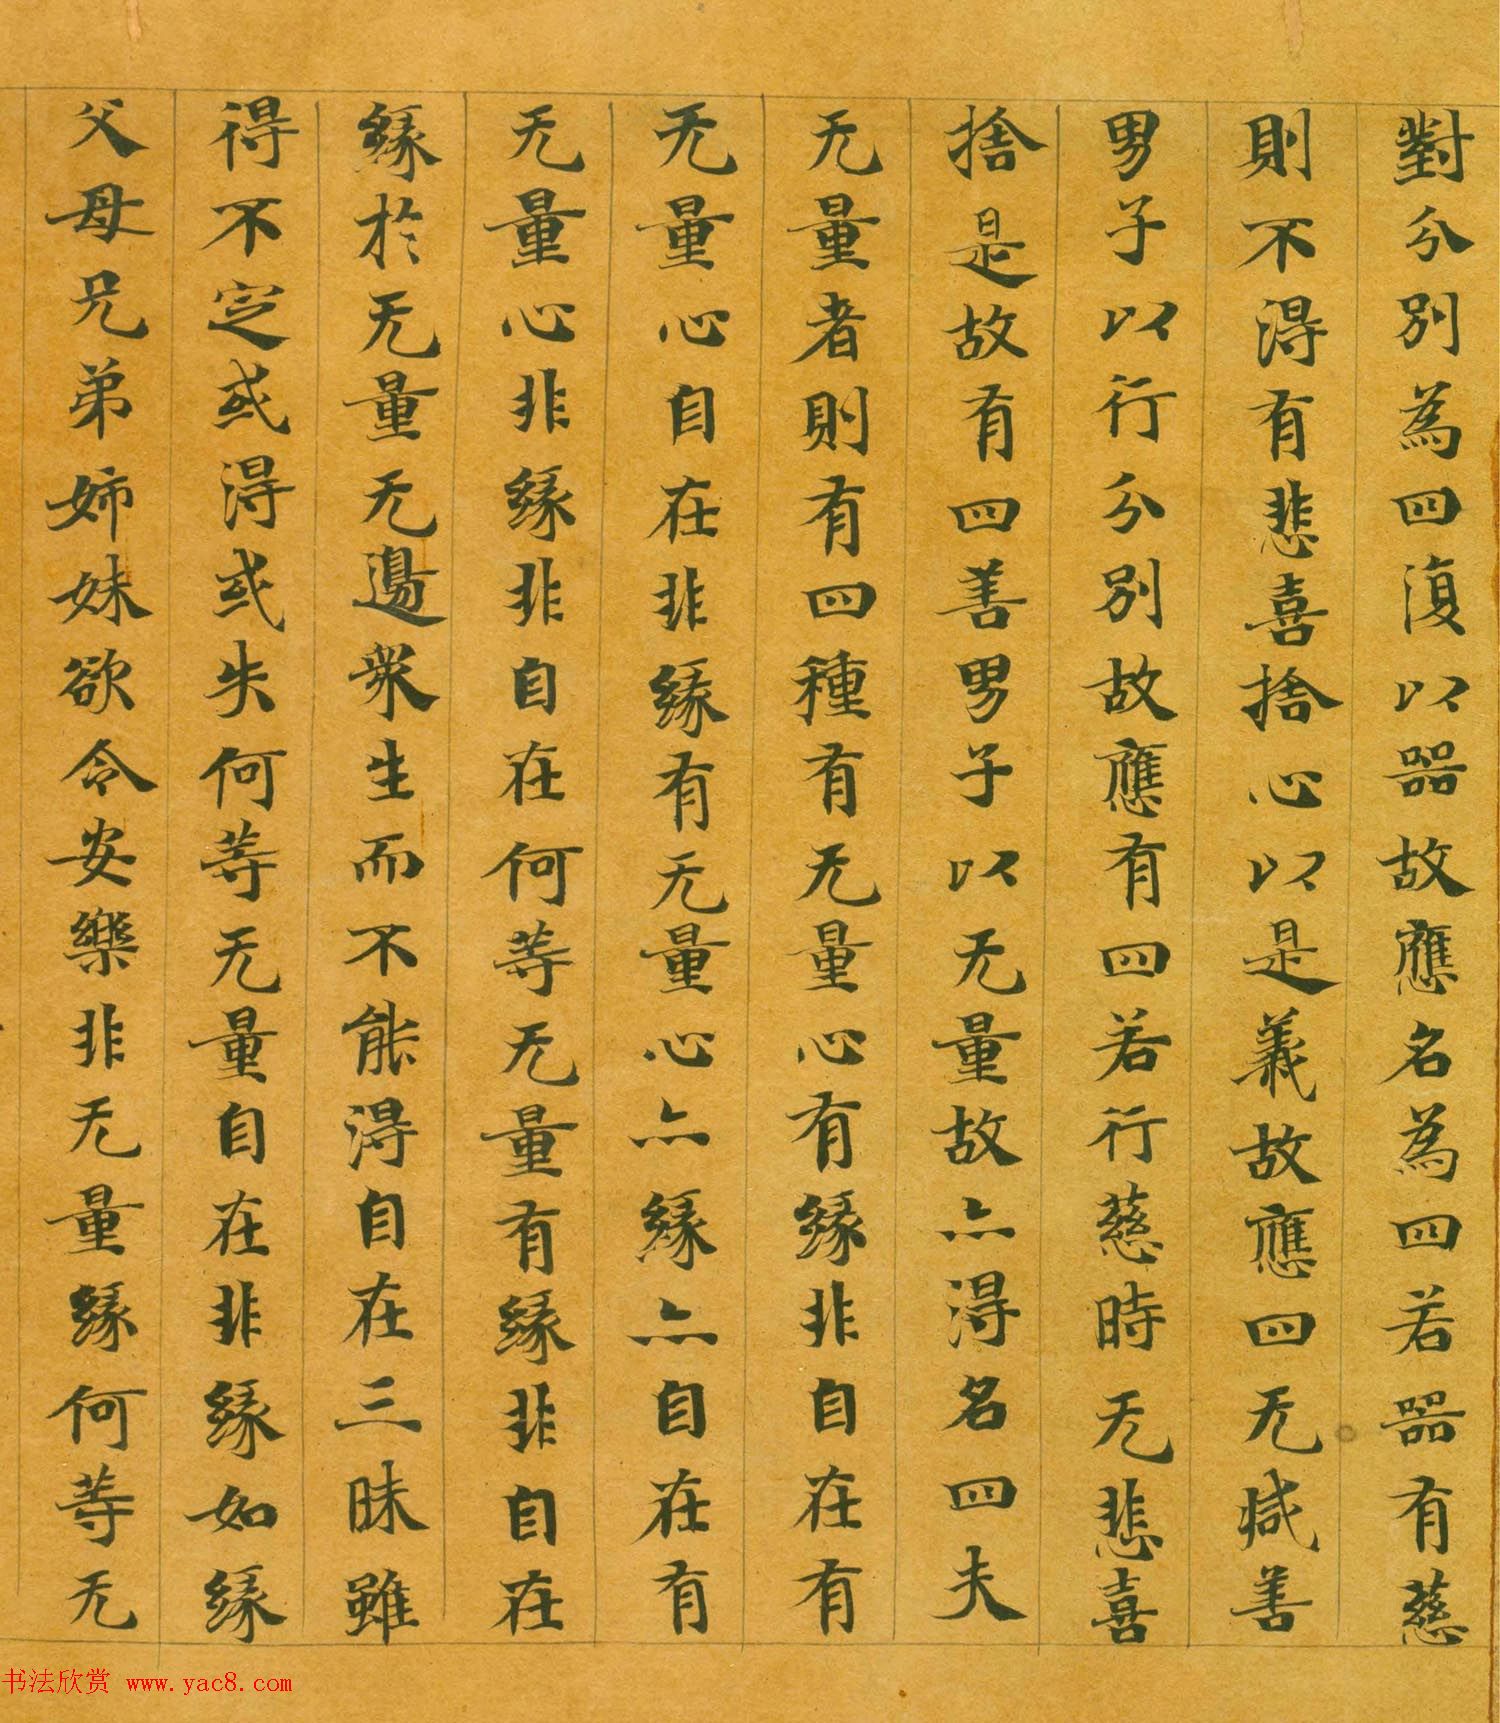 對分別為四復以器故應名為四若器有慈
則不得有悲喜捨心以是義故應四无減善
男子以行分別故應有四若行慈時无悲喜
捨是故有四善男子以无量故亦得名四夫
无量者則有四種有无量心有緣非自在有
无量心自在非緣有无量心亦緣亦自在有
无量心非緣非自在何等无量有緣非自在
緣於无量无邊衆生而不能得自在三昧雖
得不定或得或失何等无量自在非緣如緣
父母兄弟姊妹欲令安樂非无量緣何等无
书法欣赏 www.yac8.com